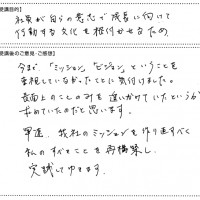 【受講目的】
社員が自らの意志で成長に向けて
行動する文化を根付かせるため
【受講後のご意見・ご感想】
今まで、「ミッション」「ビジョン」ということを
重視していなかったことに気付けました。
表面上のことのみを追いかけていたというか
求めていたのだと思います。
早速、我社のミッションを作り直すべく
私のすべきことを再構築し、
実践してゆきます。